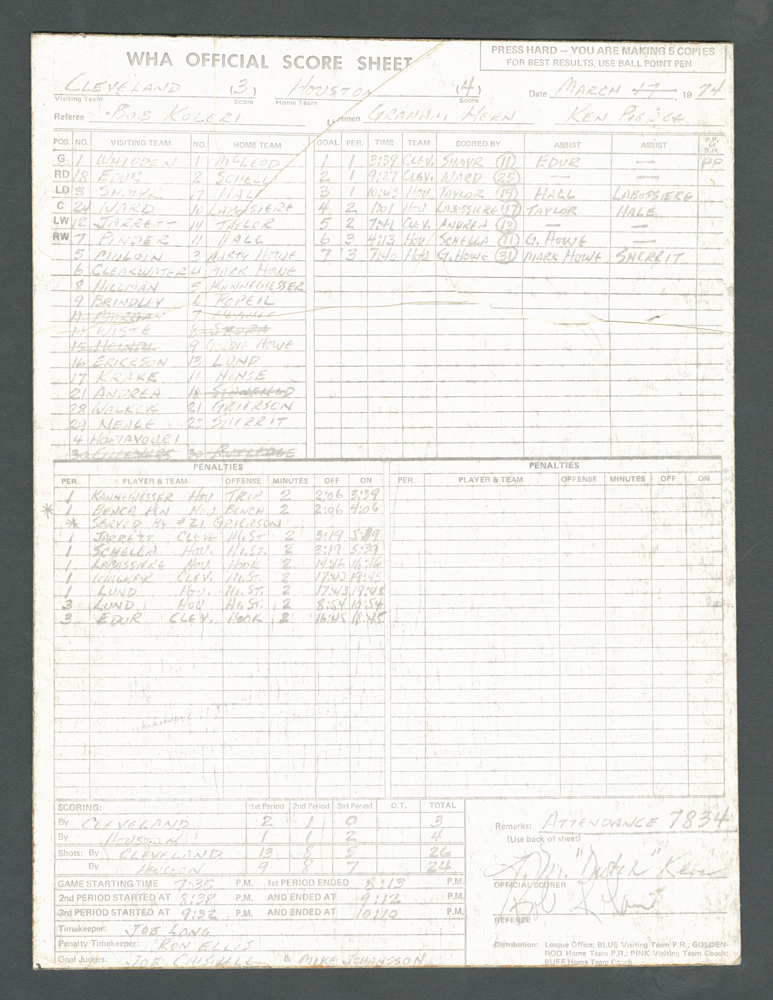 WHA OFFICIAL SCORE SHEET
PRESS HARD — YOU ARE MAKING 5 COPIES
FOR BEST RESULTS, USE BALL POINT PEN
CLEVELAND (3) HOUSTON (4) Date MARCH 19 74
Visiting Team Score Home Team Score
Referee BOB KOLERI GRAHAM HERN KEN PIERCE
POS. NO. VISITING TEAM NO. HOME TEAM GOAL PER. TIME TEAM SCORED BY ASSIST ASSIST
G 1 WHIDDEN 1 McLEOD 1 1 3:39 CLEV. SHMYR (11) EDUR — PP
RD 18 EDUR 2 SCHELLA 2 1 9:27 CLEV. WARD (25) — —
LD 3 SHMYR 17 HALE 3 1 HOU TAYLOR (19) HALL LABOSSIERE
C 24 WARD 10 LABOSSIERE 4 2 HOU LABOSSIERE (17) TAYLOR HALE
LW 12 JARRETT 14 TAYLOR 5 2 7:41 CLEV. ANDREA (13) — —
RW 7 PINDER 11 HALL 6 3 4:13 HOU SCHELLA (11) G. HOWE —
5 MULOIN 3 MARTY HOWE 7 3 7:40 HOU G. HOWE (31) MARK HOWE SHERRIT
6 CLEARWATER 4 MARK HOWE
8 HILLMAN 5 KANNEGIESSER
9 BRINDLEY 6 POPEIL
7 HUGHES
WISTE
15 9 GORDIE HOWE
16 ERICKSON 13 LUND
17 KRAKE HINSE
21 ANDREA 18 STANFIELD
28 WALKER 21 GRIERSON
29 NEALE 22 SHERRIT
4 HORNAVOURI
30 30 RUTLEDGE
PENALTIES PENALTIES
PER. PLAYER & TEAM OFFENSE MINUTES OFF ON PER. PLAYER & TEAM OFFENSE MINUTES OFF ON
1 KANNEGIESSER HOU TRIP 2 2:06 3:39
* 1 BENCH PEN HOU BENCH 2 2:06 4:06
* SERVED BY #21 GRIERSON
1 JARRETT CLEVE HI.ST 2 3:19
1 SCHELLA HOU. HI.ST. 2 3:19 5:39
1 LABOSSIERE HOU HOOK 2 14:16 16:16
1 WALKER CLEV. HI.ST. 2 17:43 19:43
1 LUND HOU. HI.ST. 2 17:43 19:43
3 LUND HOU HI.ST. 2 8:54 10:54
3 EDUR CLEV. HOOK 2 16:45 18:45
SCORING: 1st Period 2nd Period 3rd Period O.T. TOTAL
By CLEVELAND 2 1 0 3
By HOUSTON 1 1 2 4
Shots: By CLEVELAND 13 8 5 26
By HOUSTON 9 8 7 24
Remarks: ATTENDANCE 7834
(Use back of sheet)
GAME STARTING TIME 7:35 P.M. 1st PERIOD ENDED 8:13 P.M.
2nd PERIOD STARTED AT 8:38 P.M. AND ENDED AT 9:12 P.M.
3rd PERIOD STARTED AT 9:32 P.M. AND ENDED AT 10:10 P.M.
OFFICIAL SCORER
REFEREE
Timekeeper: JOE LONG
Penalty Timekeeper: RON ELLIS
Goal Judges: JOE CHISHALL & MIKE JOHANSSON
Distribution: League Office; BLUE Visiting Team P.R.; GOLDEN-
ROD Home Team P.R.; PINK Visiting Team Coach;
BUFF Home Team Coach